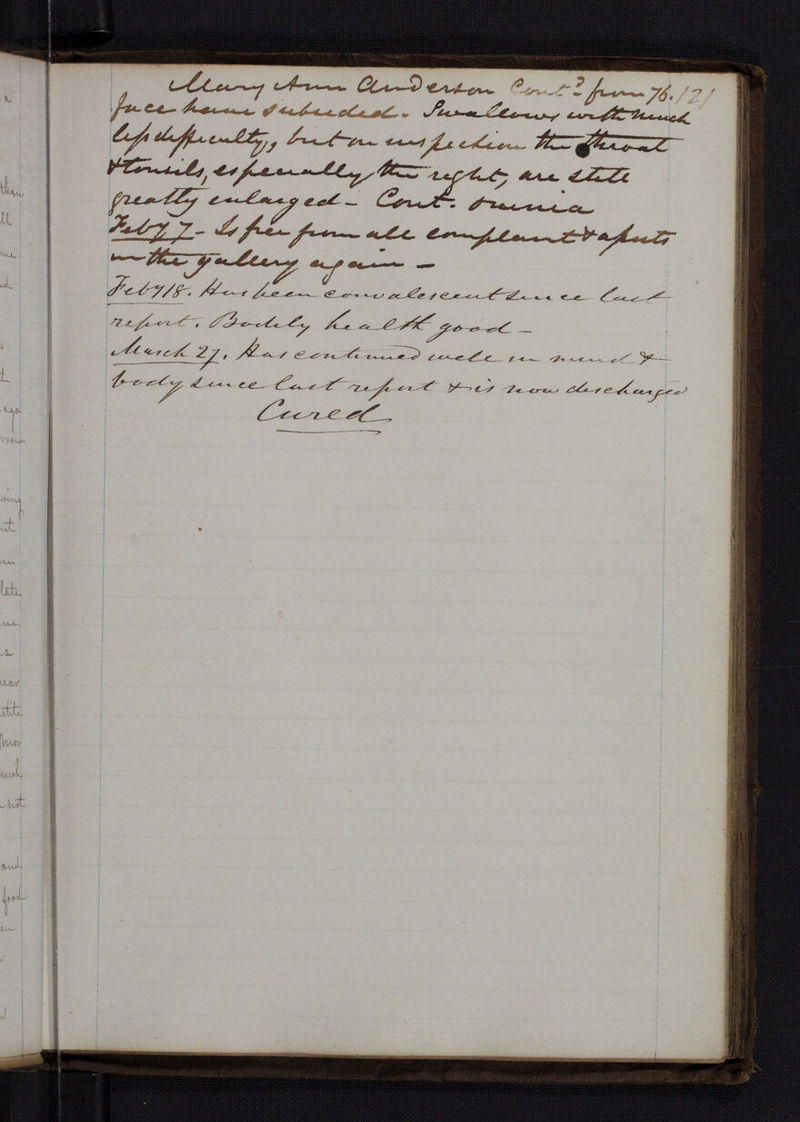 Mary Ann Anderson Contd from 76. 121
face have subsided. Swallows with much
less difficulty, but on inspection the throat
& tonsils, especially the right, are still
greatly enlarged - Cont. omnia
Feby 7 - Is free from all complaint & assists
in the gallery again -
Feby 18. Has been convalescent since last
report. Bodily health good -
March 27. Has continued well in mind &
body since last report & is now discharged
Cured